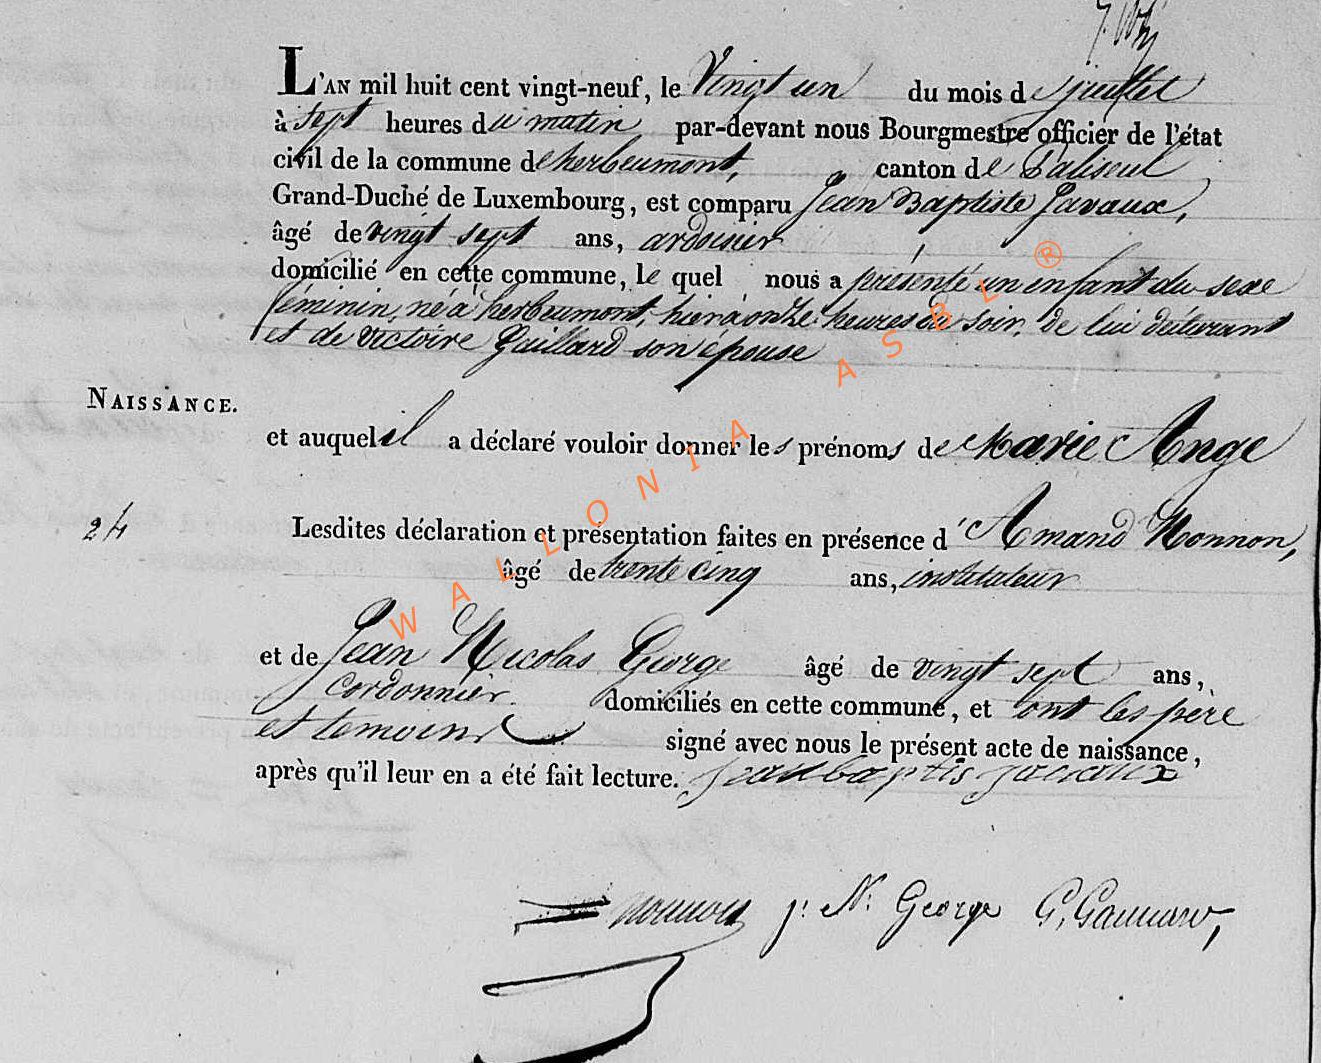 L'AN mil huit cent vingt-neuf, le Vingt un du mois de juillet
à sept heures du matin par-devant nous Bourgmestre officier de l'état
civil de la commune de herbeumont, canton de Paliseul
Grand-Duché de Luxembourg, est comparu Jean Baptiste Javaux,
âgé de vingt sept ans, ardoisier
domicilié en cette commune, le quel nous a présenté un enfant du sexe
féminin, né à herbeumont, hier à onze heures du soir, de lui déclarant
et de victoire Guillard son épouse
NAISSANCE.
et auquel il a déclaré vouloir donner les prénoms de Marie Ange
24
Lesdites déclaration et présentation faites en présence d'Amand Nonnon,
âgé de trente cinq ans, instituteur
et de Jean Nicolas George âgé de vingt sept ans,
cordonnier domiciliés en cette commune, et ont les père
et temoins signé avec nous le présent acte de naissance,
après qu'il leur en a été fait lecture. jean baptis javaux
j. N. George G,
WALLONIA ASBL ®